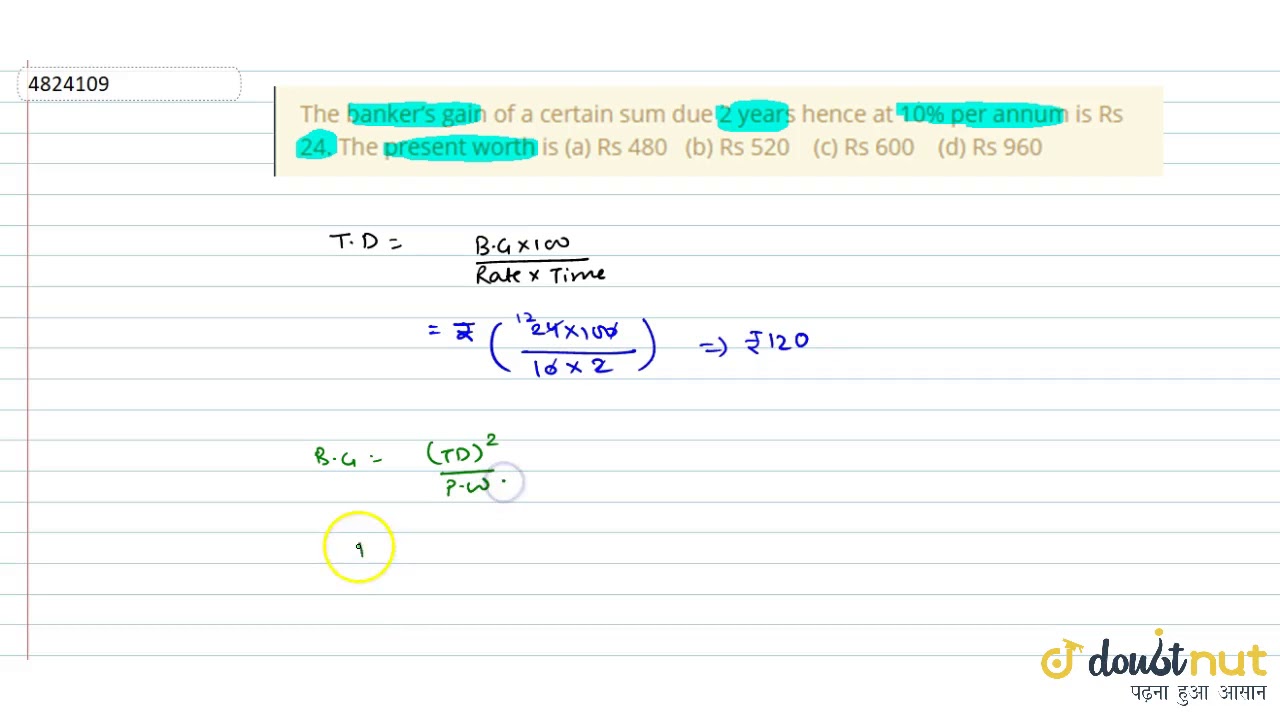 4824109
The banker's gain of a certain sum due 2 years hence at 10% per annum is Rs
24. The present worth is (a) Rs 480 (b) Rs 520 (c) Rs 600 (d) Rs 960
T.D = B.G × 100
Rate × Time
= ₹ ( 12 24 × 100
10 × 2 ) => ₹ 120
B.G = (TD)²
P.W.
doubtnut
पढ़ना हुआ आसान